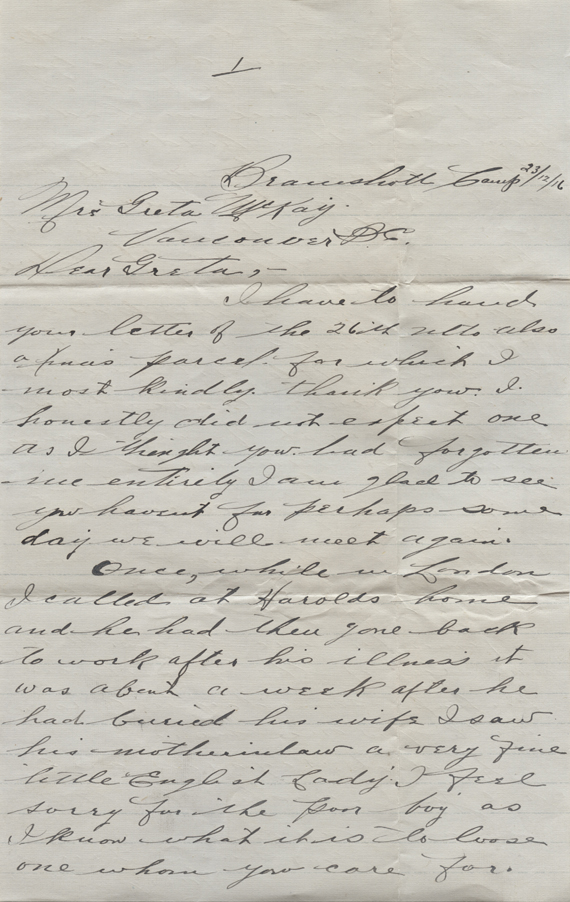 1
Bramshott Camp 23/12/16
Mrs Greta McKay.
Vancouver B.C.
Dear Greta,-
I have to hand
your letter of the 26ith ulto also
a Xmas parcel. for which I
most kindly. thank you. I.
honestly did not expect one
as I thought you had forgotten
me entirely I am glad to see
you havent for perhaps some
day we will meet again.
Once, while in London
I called at Harolds home
and he had then gone back
to work after his illness it
was about a week after he
had buried his wife I saw
his motherinlaw a very fine
little English Lady. I feel
sorry for the poor boy as
I know what it is to loose
one whom you care for.